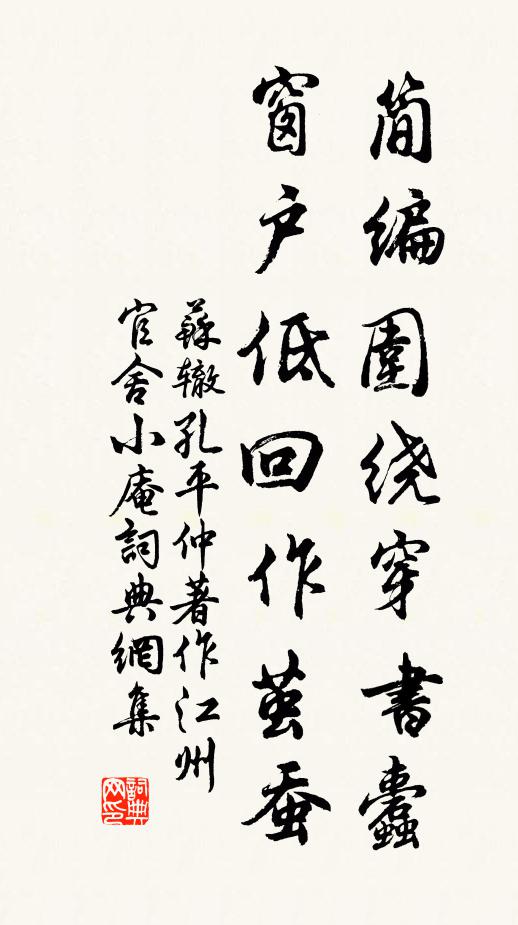 简编围绕穿书蠹
窗户低回作茧蚕
蘇辙孔平仲著作江州
官舍小庵詞典網集
詞典
网印